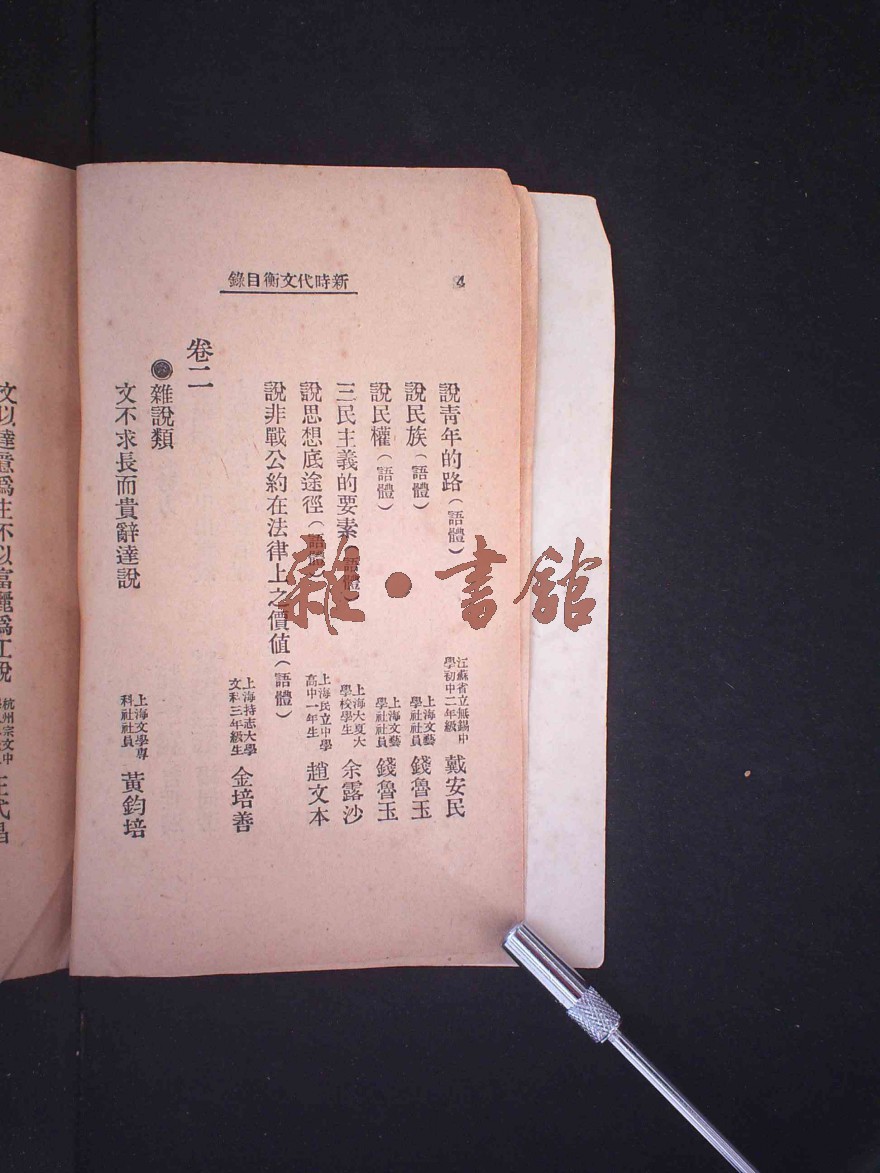 新時代文衡目錄
4
說青年的路(語體) 江蘇省立無錫中學初中二年級 戴安民
說民族(語體) 上海文藝學社社員 錢魯玉
說民權(語體) 上海文藝學社社員 錢魯玉
三民主義的要素(語體) 上海大夏大學校學生 余露沙
說思想底途徑(語體) 上海民立中學高中一年生 趙文本
說非戰公約在法律上之價值(語體) 上海持志大學文科三年級生 金培善
卷二
雜說類
文不求長而貴辭達說 上海文學專科社社員 黃鈞培
文以達意爲主不以富麗爲工說 杭州宗文中 王式昌
雜·書館